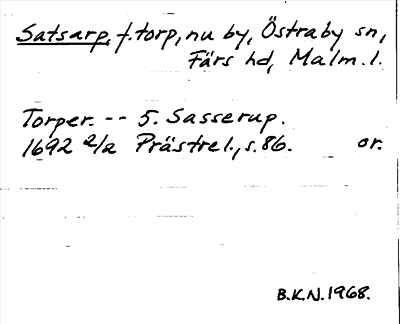 Satsarp, f. torp, nu by, Östraby sn,
Färs hd, Malm. l.
Torper. -- 5. Sasserup.
1692 2/2 Prästrel., s. 86. or.
B.K.N. 1968.